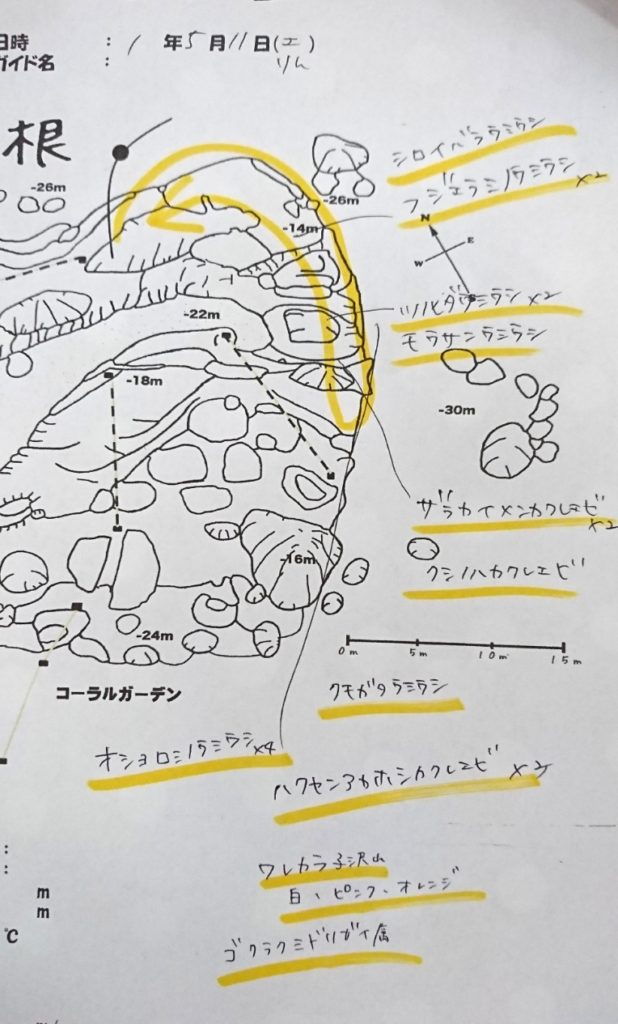 日時 : 1 年 5 月 11 日(土)
ガイド名 : りん
根
-26m
-26m
シロイバラウミウシ
フジエラミノウミウシ ×2
-14m
N
E
W
S
-22m
ツノヒダウミウシ ×2
モウサンウミウシ
-18m
-30m
ザラカイメンカクレエビ ×2
-16m
クシノハカクレエビ
-24m
0m 5m 10m 15m
コーラルガーデン
クモガタウミウシ
オショロミノウミウシ ×4
ハクセンアカホシカクレエビ ×2
ワレカラ子沢山
白、ピンク、オレンジ
:
:
ゴクラクミドリガイ属
m
m
℃